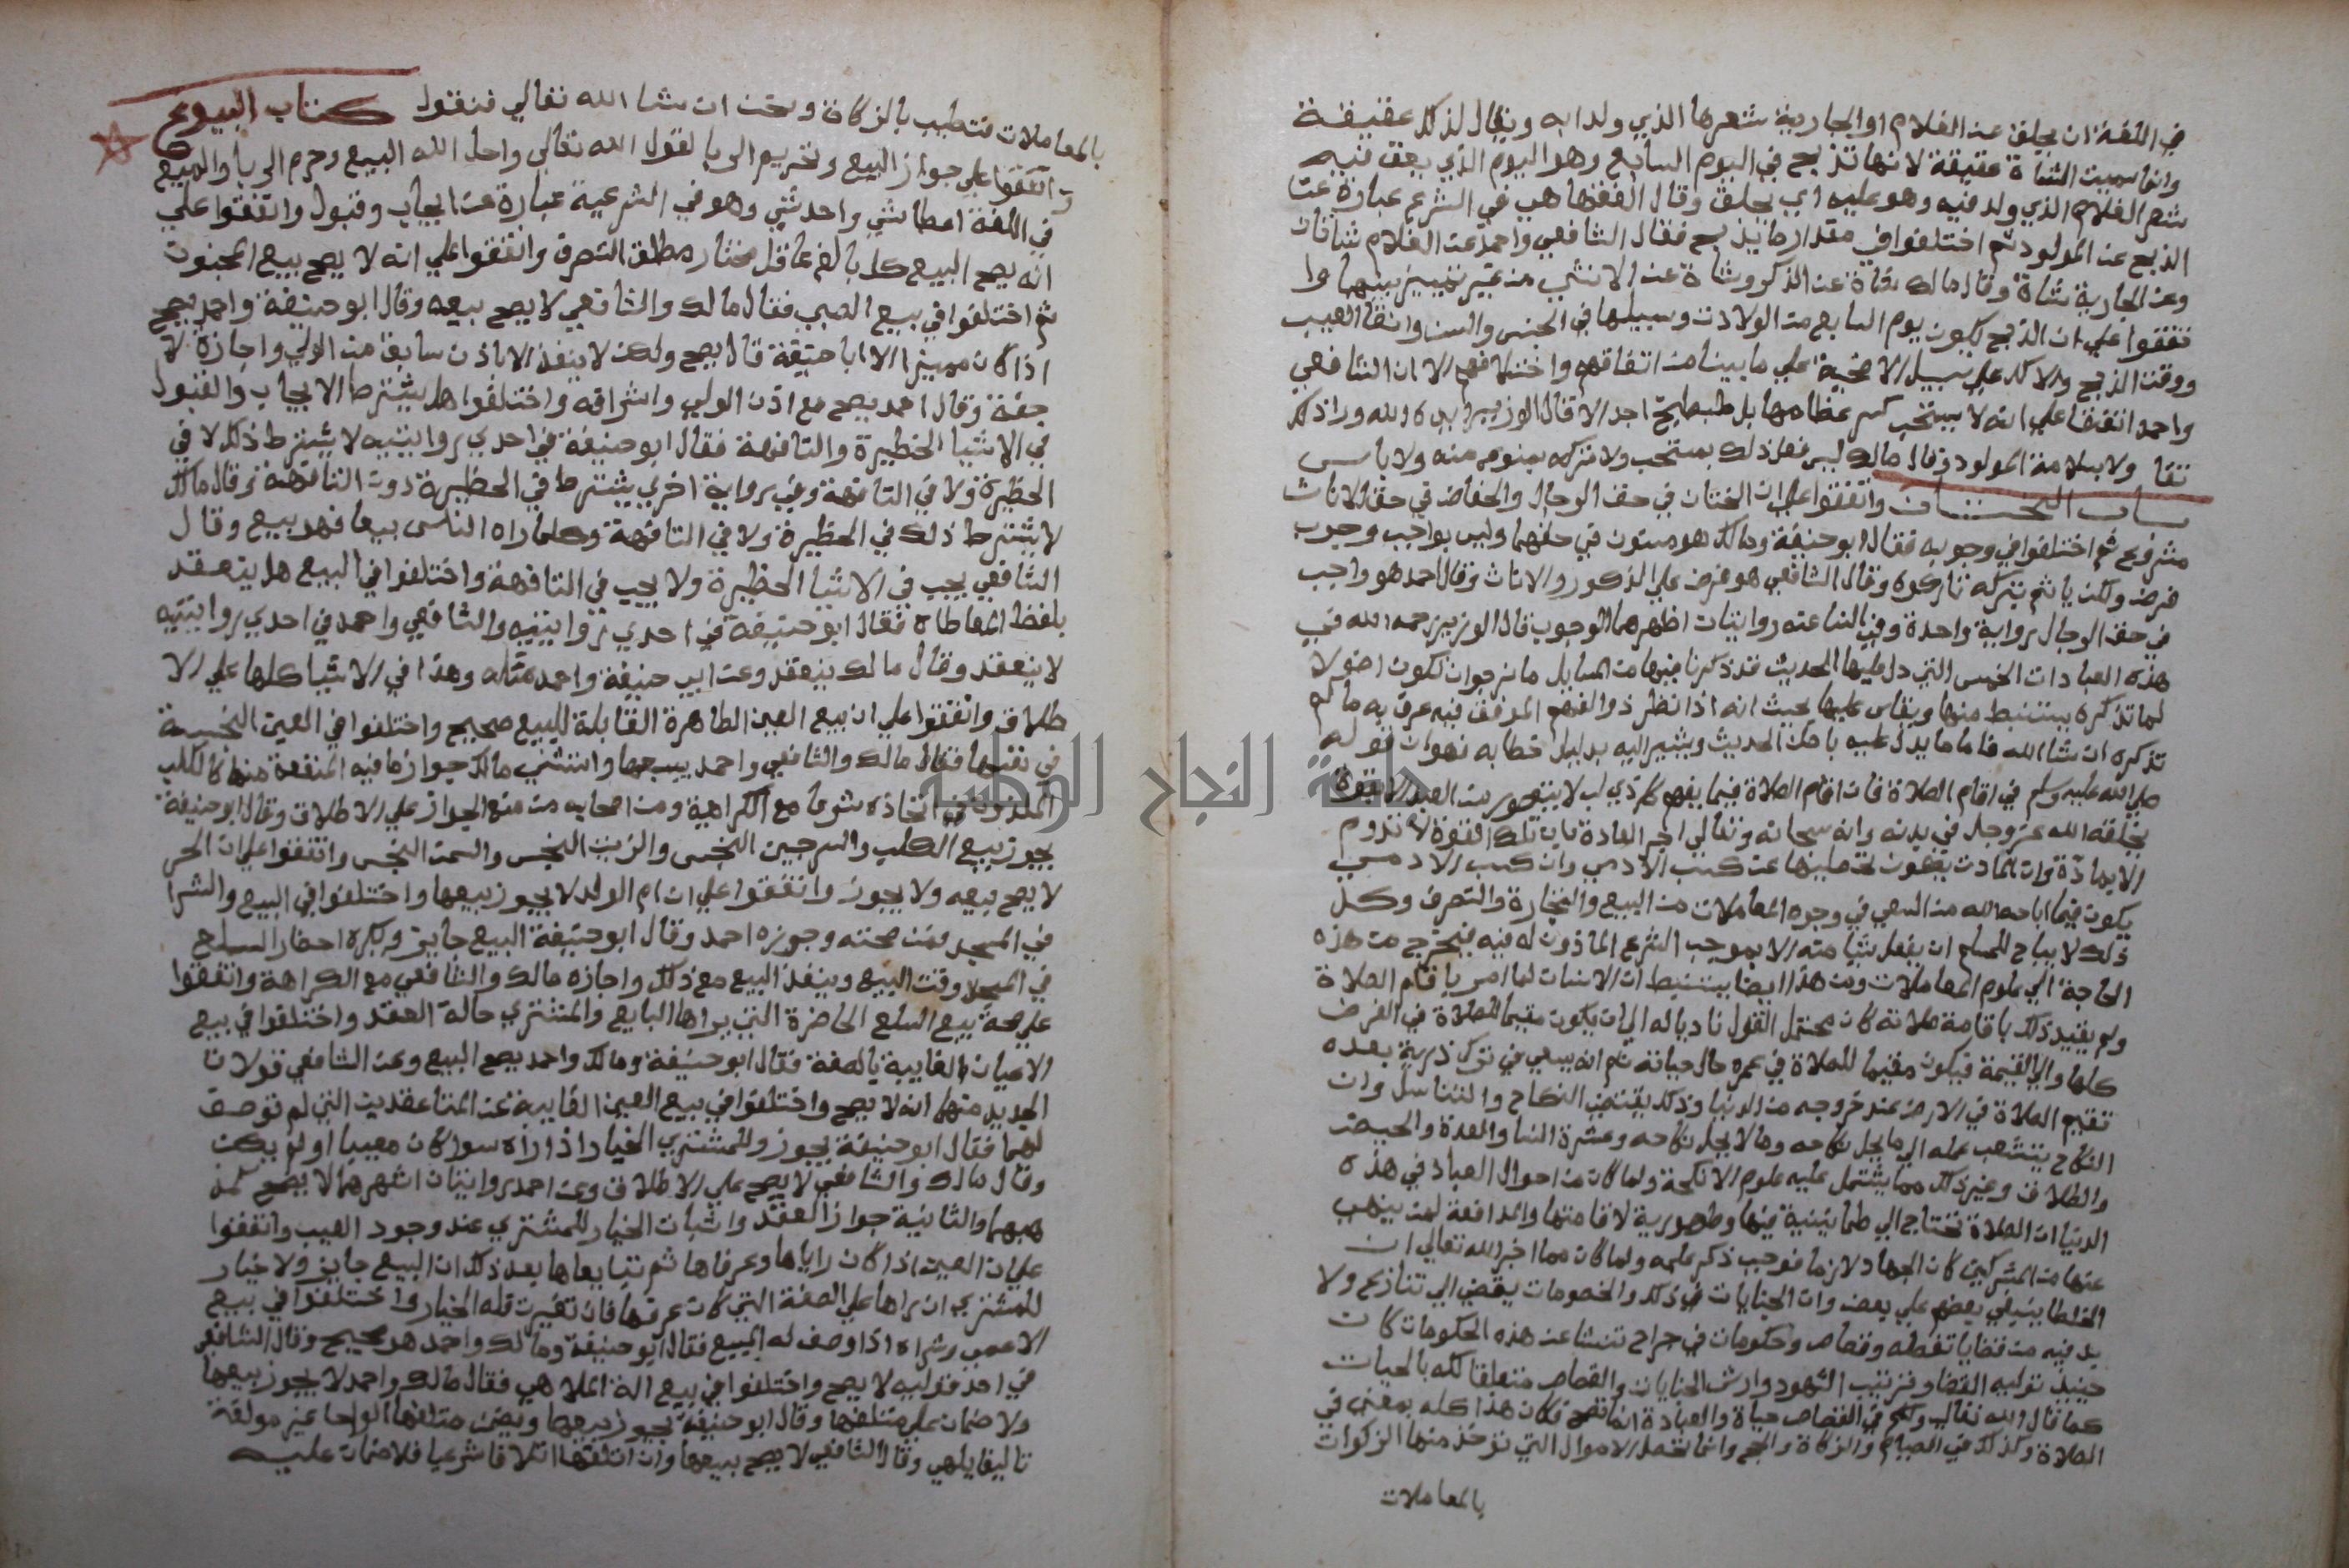 في اللغة ان يحلق عن الغلام او الجارية شعرها الذي ولدا به ويقال لذلك عقيقة
وانما سميت الشاة عقيقة لانها تذبح في اليوم السابع وهو اليوم الذي يعق فيه
شعر الغلام الذي ولد فيه وهو عليه اي يحلق وقال الفقها هي في الشرع عبارة عن
الذبح عن المولود ثم اختلفوا في مقدار ما يذبح فقال الشافعي واحمد عن الغلام شاتان
وعن الجارية شاة وقال مالك شاة عن الذكر وشاة عن الانثي من غير تمييز بينهما وا
تفقوا علي ان الذبح يكون يوم السابع من الولادة وسبيلها في الجنس والسن واتقا العيب
ووقت الذبح والاكل علي سبيل الاضحية علي ما بينا من اتفاقهم واختلافهم الا ان الشافعي
واحمد اتفقا علي انه لا يستحب كسر عظامها بل طبطبخ اجدالا قال الوزير ايده الله وراذلك
تفا ولا بسلامة المولود وقال مالك ليس فعل ذلك بمستحب ولا تركه بممنوع منه ولا باس
باب الختان واتفقوا علي ان الختان في حق الرجال والخفاض في حق الاناث
مشروع ثم اختلفوا في وجوبه فقال ابو حنيفة ومالك هو مسنون في حقهما وليس بواجب وجوب
فرض ولكن ياثم بتركه تاركوه وقال الشافعي هو فرض علي الذكور والاناث وقال احمد هو واجب
في حق الرجال رواية واحدة وفي النسا عنه روايتان اظهرهما الوجوب قال الوزير رحمه الله في
هذه العبادات الخمس التي دل عليها الحديث قد ذكرنا فيها من المسايل ما نرجوا ان تكون اصولا
لما تذكره يستنبط منها ويقاس عليها بحيث انه اذا نظر ذو الفهم الموفق فيه عرف به ما لم
تذكره ان شا الله فاما ما يدل عليه باطن الحديث ويشير اليه بدليل خطابه فهو ان قوله
صلي الله عليه وسلم في اقام الصلاة فان اقام الصلاة فيما يفهم كل ذي لب لا يتصور من العبد الا بقوة
يخلقه الله عز وجل في بدنه وانه سبحانه وتعالي اجر العادة بان تلك القوة لا تدوم
الا بمادة وان المادة يكون تحصيلها عن كسب الادمي وان كسب الادمي
يكون فيما اباحه الله من السعي في وجوه المعاملات من البيع والتجارة والتصرف وكل
ذلك لا يباح للمسلم ان يفعل شيا منه الا بموجب الشرع الماذون له فيه فيخرج من هذه
الحاجة الي علوم المعاملات ومن هذا ايضا يستنبط ان الانسان لما امر باقام الصلاة
ولم يقيد ذلك باقامة صلاته كان محتمل القول ناديا له الي ان يكون مقيما للصلاة في الفرض
كلها والي القيمة فيكون مقيما للصلاة في عمره حال حياته ثم انه يسعي في ترك ذرية بعده
تقيم الصلاة في الارض عند خروجه من الدنيا وذلك يقتضي النكاح والتناسل وان
النكاح يتشعب عمله الي ما يحل نكاحه وما لا يحل نكاحه وعشرة النسا والعدة والحيض
والطلاق وغير ذلك مما يشتمل عليه علوم الانكحة ولما كان من احوال العباد في هذه
الدنيا ان الصلاة تحتاج الي طمانينية فيها وطهورية لاقامتها والمدافعة لمن ينهب
عنها من المشركين كان الجهاد لازما فوجب ذكر علمه ولما كان مما اخبر الله تعالي ان
الخلطا يبغي بعضهم علي بعض وان الجنايات في ذلك والخصومات يفضي الي تنازع ولا
بد فيه من قضايا تفصله وقصاص وحكومات في جراح تنشا عن هذه الحكومات كان
حينئذ توليه القضا وترتيب الشهود وارش الجنايات والقصاص متعلقا كله بالحياة
كما قال الله تعالي ولكم في القصاص حياة والعبادة انما تصح فكان هذا كله بمعني في
الصلاة وكذلك في الصيام والزكاة والحج وانما تحصل الاموال التي توخذ منها الزكوات
بالمعاملات
بالمعاملات فتطيب بالزكاة ونحن ان شا الله تعالي فنقول كتاب البيوع
واتفقوا علي جواز البيع وتحريم الربا لقول الله تعالي واحل الله البيع وحرم الربا والبيع
في اللغة اعطا شي واحد شي وهو في الشرعية عبارة عن ايجاب وقبول واتفقوا علي
انه يصح البيع كل بالغ عاقل مختار مطلق التصرف واتفقوا علي انه لا يصح بيع المجنون
ثم اختلفوا في بيع الصبي فقال مالك والشافعي لا يصح بيعه وقال ابو حنيفة واحمد يصح
اذا كان مميزا الا ان ابا حنيفة قال يصح ولكن لا ينفذ الا باذن سابق من الولي واجازة لا
حقة وقال احمد يصح مع اذن الولي واشرافه واختلفوا هل يشترط الايجاب والقبول
في الاشيا الخطيرة والتافهة فقال ابو حنيفة في احدي روايتيه لا يشترط ذلك لا في
الخطيرة ولا في التافهة وفي رواية اخري يشترط في الخطيرة دون التافهة وقال مالك
لا يشترط ذلك في الخطيرة ولا في التافهة وكلما راه الناس بيعا فهو بيع وقال
الشافعي يجب في الاشيا الخطيرة ولا يجب في التافهة واختلفوا في البيع هل ينعقد
بلفظ المعاطاه فقال ابو حنيفة في احدي روايتيه والشافعي واحمد في احدي روايتيه
لا ينعقد وقال مالك ينعقد وعن ابي حنيفة واحمد مثله وهذا في الاشيا كلها علي الا
طلاق واتفقوا علي ان بيع العين الطاهرة القابلة للبيع صحيح واختلفوا في العين النجسة
في نفسها فقال مالك والشافعي واحمد بيعها واستثني مالك جواز ما فيه المنفعة منها كالكلب
الماذون في اتخاذه شرعا مع الكراهية ومن اصحابه من منع الجواز علي الاطلاق وقال ابو حنيفة
يجوز بيع الكلب والسرجين النجس والزيت النجس والسمن النجس واتفقوا علي ان الحر
لا يصح بيعه ولا يجوز واتفقوا علي ان ام الولد لا يجوز بيعها واختلفوا في البيع والشرا
في المسجد فمنع صحته وجوزه احمد وقال ابو حنيفة البيع جايز ويكره احضار السلع
في المسجد وقت البيع وينفذ البيع مع ذلك واجازه مالك والشافعي مع الكراهة واتفقوا
علي صحة بيع السلع الحاضرة التي يراها البايع والمشتري حالة العقد واختلفوا في بيع
الاعيان الغايبة بالصفة فقال ابو حنيفة ومالك واحمد يصح البيع وعن الشافعي قولان
الجديد منهما انه لا يصح واختلفوا في بيع العين الغايبة عن المتاعقدين التي لم توصف
لهما فقال ابو حنيفة يجوز وللمشتري الخيار اذا راه سوا كان معيبا او لم يكن
وقال مالك والشافعي لا يصح علي الاطلاق وعن احمد روايتان اشهرهما لا يصح كمذ
هبهما والثانية جواز العقد واثبات الخيار للمشتري عند وجود العيب واتفقوا
علي ان العين اذا كان راياها وعرفاها ثم تبايعاها بعد ذلك ان البيع جايز ولا خيار
للمشتري ان راها علي الصفة التي كان عرفها فان تغيرت فله الخيار واختلفوا في بيع
الاعمي وشراه اذا وصف له المبيع فقال ابو حنيفة ومالك واحمد هو صحيح وقال الشافعي
في احد قوليه لا يصح واختلفوا في بيع الة الملاهي فقال مالك واحمد لا يجوز بيعها
ولا ضمان علي متلفها وقال ابو حنيفة يجوز بيعها ويضمن متلفها الواحا غير مولفة
تاليفا يلهي وقال الشافعي لا يصح بيعها وان اتلفها اتلافا شرعيا فلا ضمان عليه
جامعة النجاح الوطنية